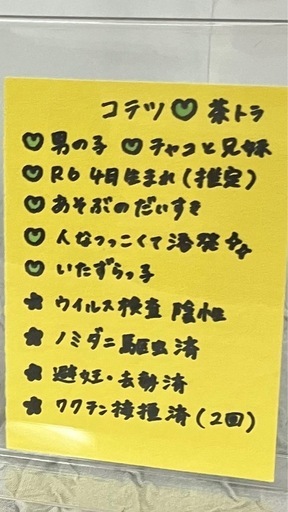 コテツ💚茶トラ
💚男の子 💚チャコと兄妹
💚R6 4月生まれ(推定)
💚あそぶのだいすき
💚人なつっこくて活発
💚いたずらっ子
★ウイルス検査 陰性
★ノミダニ駆虫済
★避妊・去勢済
★ワクチン接種済(2回)